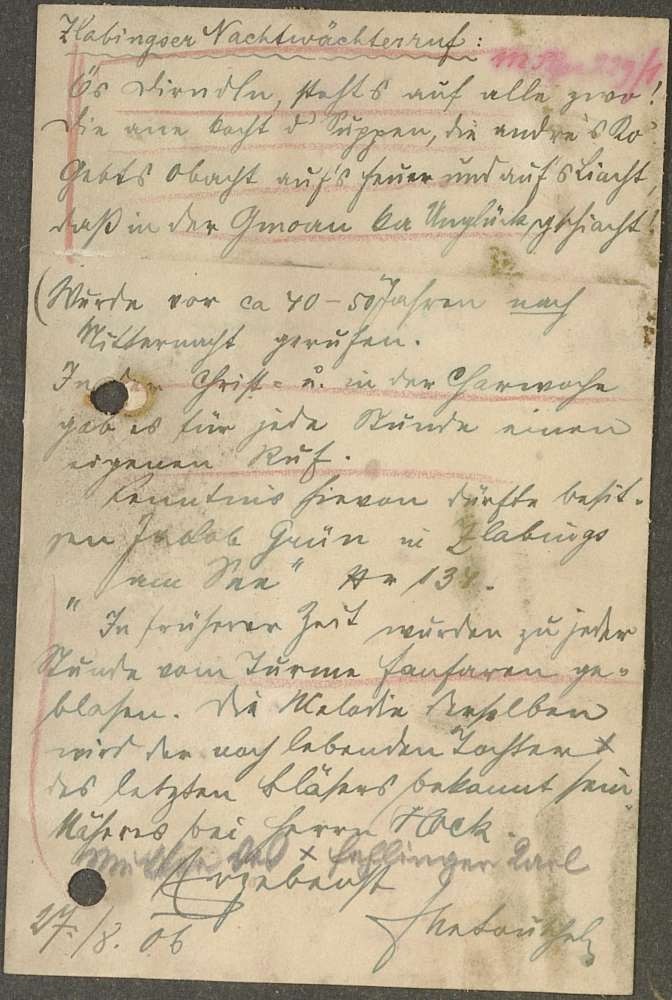 Zlabingser Nachtwächterruf:
Ös Dirndln, stehts auf alle zwo!
Die ane kocht d' Suppen, die andre 's Ko
Gebts Obacht auf's Feuer und auf 's Liacht,
daß in der Gmoan ka Unglück gschiacht!
(Wurde vor ca 40-50 Jahren nach
Mitternacht gerufen.
In der Christ- u. in der Charwoche
gab es für jede Stunde einen
eigenen Ruf.
Kenntnis hievon dürfte besit-
zen Jakob Grün in Zlabings
"am See" Nr 134.
In früherer Zeit wurden zu jeder
Stunde vom Turme Fanfaren ge-
blasen. Die Melodie derselben
wird der noch lebenden Tochter x
des letzten Bläsers bekannt sein.
Näheres bei Herrn Hock.
x Fehlinger Karl
Ergebenst
27./8. 06